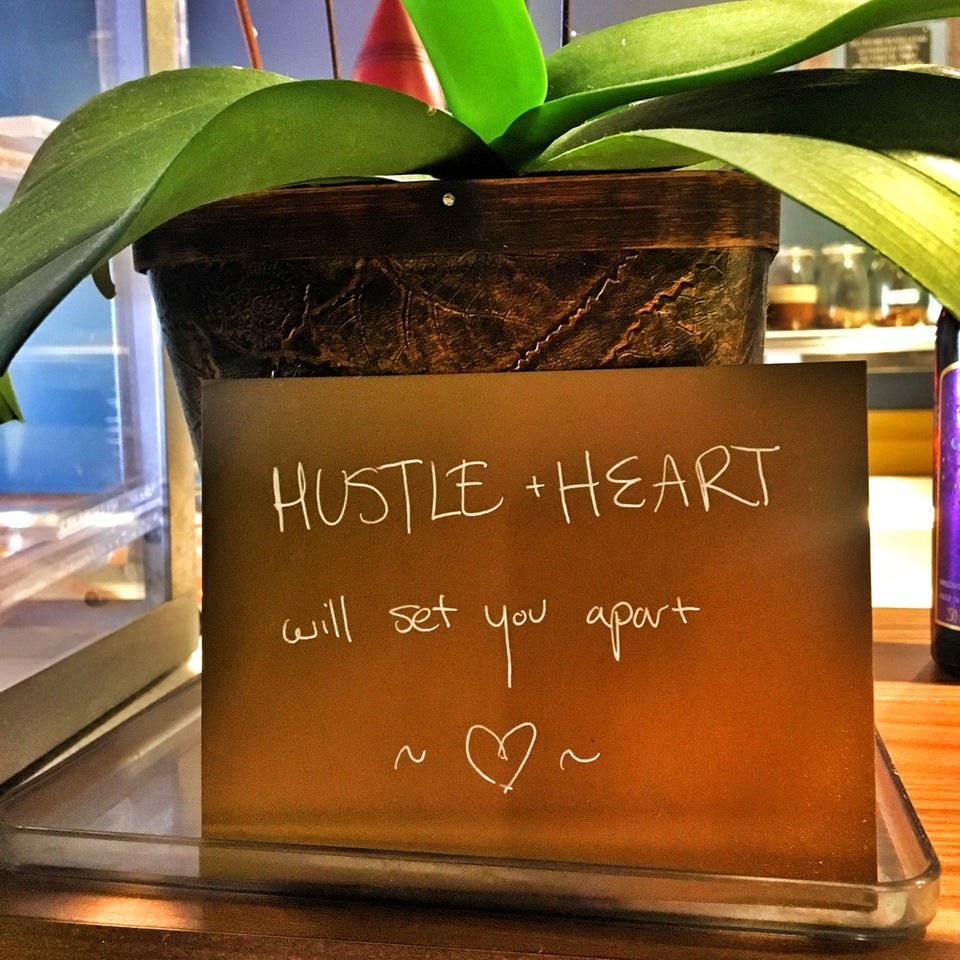 HUSTLE + HEART
will set you apart
~ ♡ ~